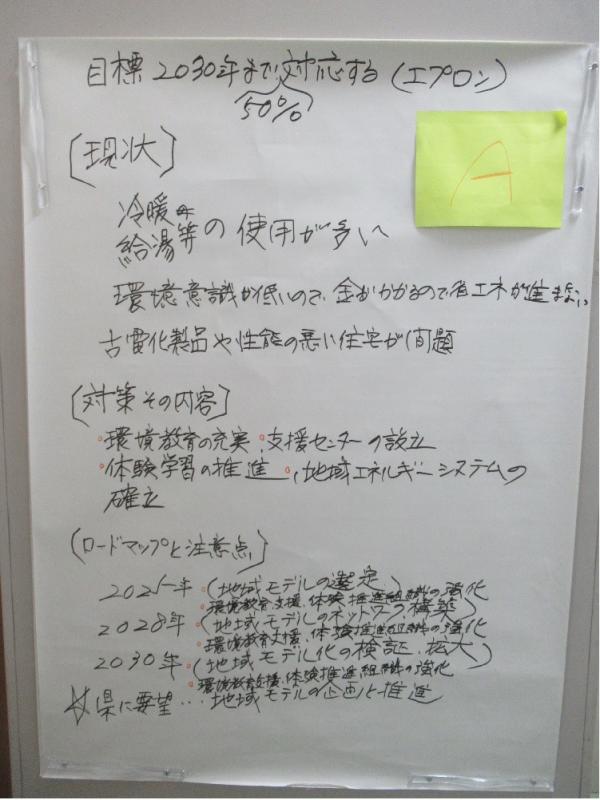 目標 2030年まで対応する (エプロン)
50%
A
[現状]
冷暖や
給湯等の使用が多い
環境意識が低いので、金がかかるので省エネが進まない。
古電化製品や性能の悪い住宅が問題
[対策その内容]
・環境教育の充実 ・支援センターの設立
・体験学習の推進 ・地域エネルギーシステムの
確立
(ロードマップと注意点)
202 年・(地域モデルの選定)
環境教育、支援、体験推進組織の強化
2028年・(地域モデルのネットワーク構築)
環境教育支援、体験推進組織の強化
2030年・(地域モデル化の検証、拡大)
・環境教育支援、体験推進組織の強化
☆県に要望…地域モデルの企画と推進